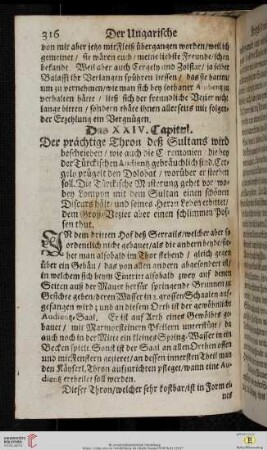 316 Der Ungarische
von mir aber jetzo mit Fleiß übergangen worden/ weil ich
gemeinet / sie wären euch / meine liebste Freunde / schon
bekandt. Weil aber auch Cergely und Zolffar / ja selber
Balassi ihr Verlangen spühren liessen / das sie hätten/
um zu vernehmen / wie man sich bey sothaner Audienz zu
verhalten hätte / ließ sich der freundliche Vezier nicht
lange bitten / sondern thäte ihnen allerseits mit folgen-
der Erzehlung ein Vergnügen.
Das XXIV. Capitel.
Der prächtige Thron deß Sultans wird
beschrieben / wie auch die Ceremonien / die bey
der Türckischen Audienz gebräuchlich sind. Cer-
gely prügelt den Dolobat / worüber er sterben
soll. Die Türckische Musterung gehet vor-
bey Lompyn mit dem Sultan einen schönen
Discurs hält / und seines Herrn Leben erbittet/
dem Groß-Vezier aber einen schlimmen Pos-
sen thut.
IN dem dritten Hof deß Serrails / welcher aber so
ordentlich nicht gebauet / als die andern beyde / sie-
het man alsobald im Thor stehend / gleich gegen
über ein Gebäu / das von allen andern abgesondert ist/
in welchem sich beym Eintritt alsobald zwey auf denen
Seiten auß der Mauer herfür springende Brunnen zu
Gesichte geben / deren Wasser in 2. grossen Schaalen auf-
gefangen wird; und an diesem Orth ist der gewöhnliche
Audientz-Saal. Er ist auf Arth eines Gewölbes ge-
bauet / mit Marmorsteinern Pfeilern unterstützt / da
auch noch in der Mitte ein kleiner Spring-Wasser in ein
Becken spielt. Sonst ist der Saal an allen Orthen offen
und mit Fenstern gezieret / an dessen innersten Theil man
den Käyserl. Thron aufzurichten pfleget / wann eine Au-
dientz ertheilet soll werden.
Dieser Thron / welcher sehr kostbar / ist in Form ei-
nes